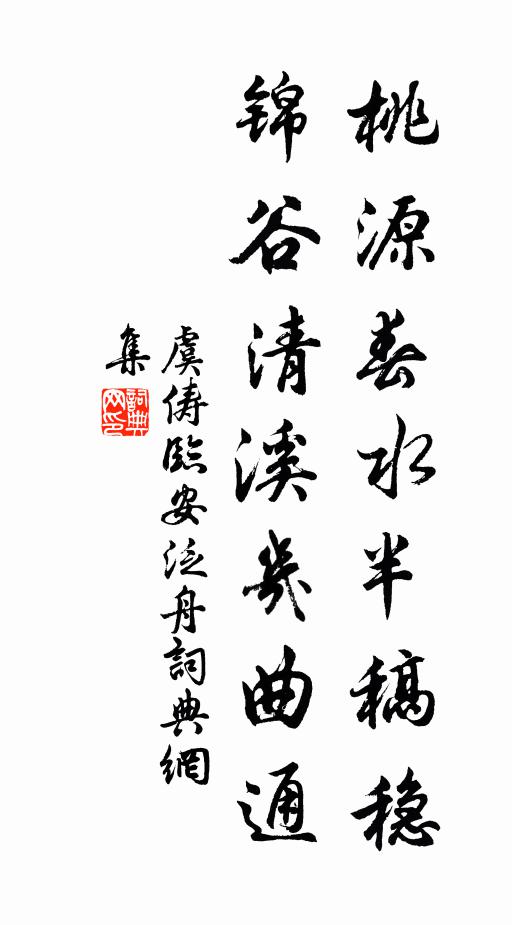 桃源春水半稿稳
锦谷清溪几曲通
虞俦臨安泛舟詞典網
集
詞典
网印